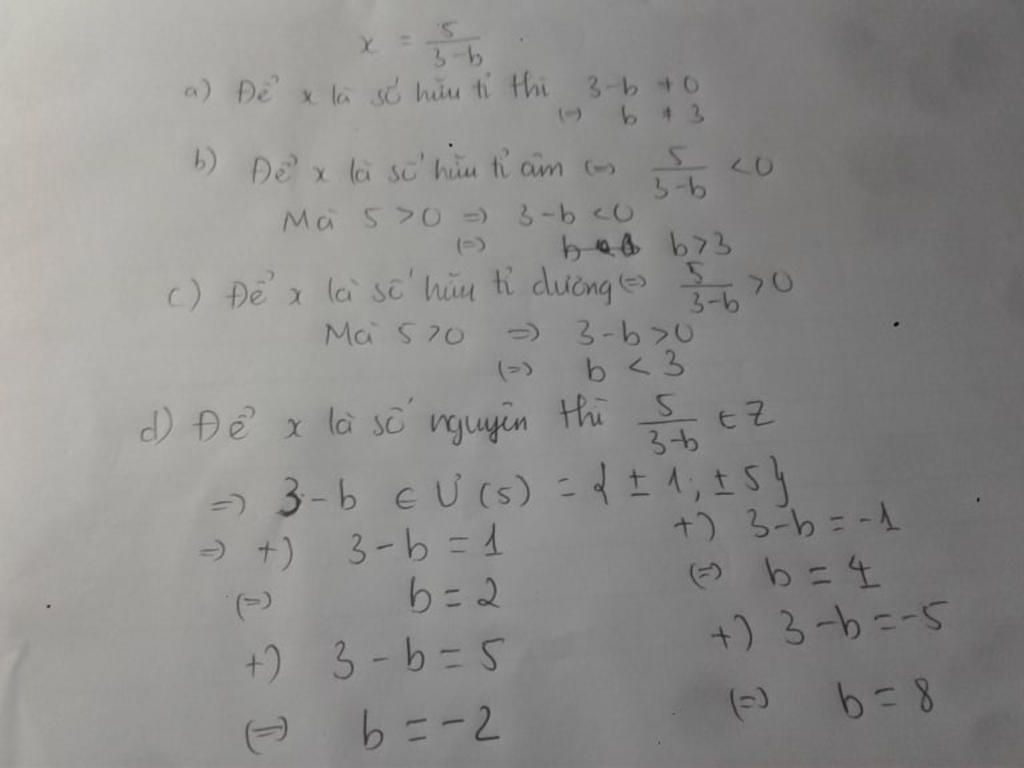 x = 5/(3-b)
a) Để x là số hữu tỉ thì 3-b ≠ 0
(=) b ≠ 3
b) Để x là số hữu tỉ âm (=) 5/(3-b) < 0
Mà 5 > 0 => 3-b < 0
(=) b > 3
c) Để x là số hữu tỉ dương (=) 5/(3-b) > 0
Mà 5 > 0 => 3-b > 0
(=) b < 3
d) Để x là số nguyên thì 5/(3-b) ∈ Z
=> 3-b ∈ Ư(5) = { ± 1; ± 5 }
=> +) 3-b = 1 +) 3-b = -1
(=) b = 2 (=) b = 4
+) 3-b = 5 +) 3-b = -5
(=) b = -2 (=) b = 8